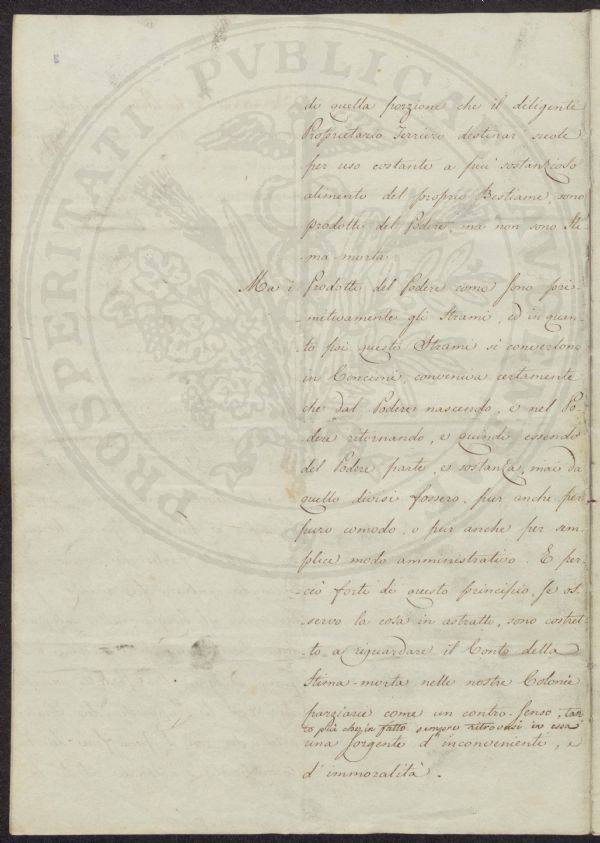 PROSPERITATI PUBLICAE AU
di quella porzione che il diligente
Proprietario Terriero destinar' suole
per uso costante a più sostanzioso
alimento del proprio Bestiame, sono
prodotti del Podere, ma non sono Sti
-ma-morta
Ma i Prodotti del Podere come sono pri-
-mitivamente gli Strami, ed in quan-
-to poi questi Strami si convertono
in Concimi, conveniva certamente
che dal Podere nascendo, e nel Po-
-dere ritornando, e quindi essendo
del Podere parte, e sostanza, mai da
quello divisi fossero, pur anche per
puro comodo, o pur anche per sem-
-plice modo amministrativo. E per-
-ciò forte di questo principio, se os-
-servo la cosa in astratto, sono costret-
-to a riguardare il Conto della
Stima-morta nelle nostre Colonie
parziarie come un contro-senso, tan
to più che in fatto sempre ritrovasi in essa
una sorgente d'inconvenienti, e
d'immoralità.